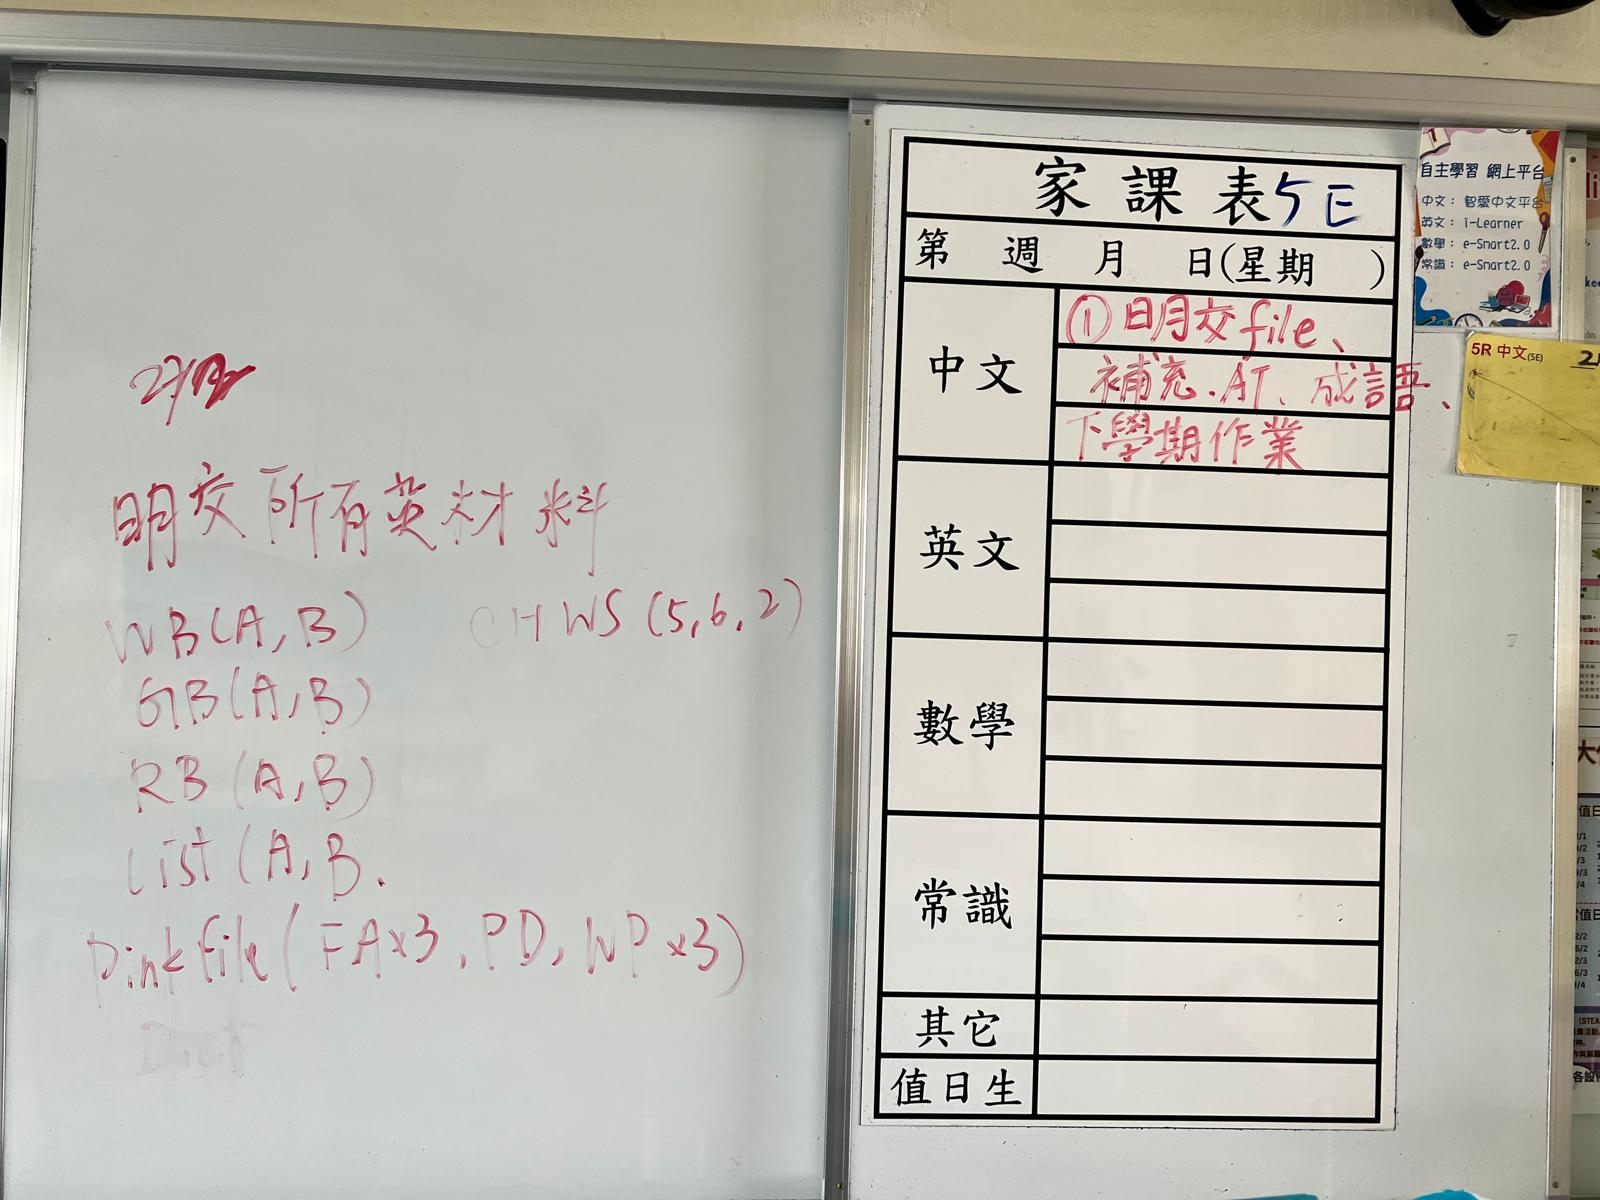 明交所有英文材料
WB(A,B)
CH WS (5,6,2)
GB(A,B)
RB (A,B)
List (A,B.
Pink file ( FA×3, PD, WP ×3)
家課表5E
第 週 月 日(星期 )
中文
①明交file、
補充.AT、成語、
下學期作業
英文
數學
常識
其它
值日生
自主學習 網上平台
中文: 智愛中文平台
英文: i-Learner
數學: e-Smart2.0
常識: e-Smart2.0
5R 中文(5E)